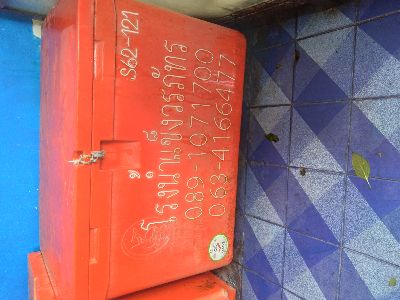 S62-121
โรงน้ำแข็งวรภัทร
089-1071700
063-4166477